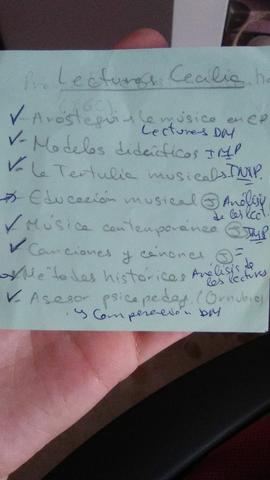 Lecturas Cecilia
✓- Aróstegui: la música en EP
Lecturas DM
✓- Modelos didácticos IMP
✓- La Tertulia musical → IMP.
→- Educación musical ③ Análisis de las lect
✓ Música contemporánea ③ IMP
✓ Canciones y cánones ③ =
→- Métodos históricos Análisis de las lecturas
✓- Asesor psicopedag. (Ornubio)
y Comparación DM